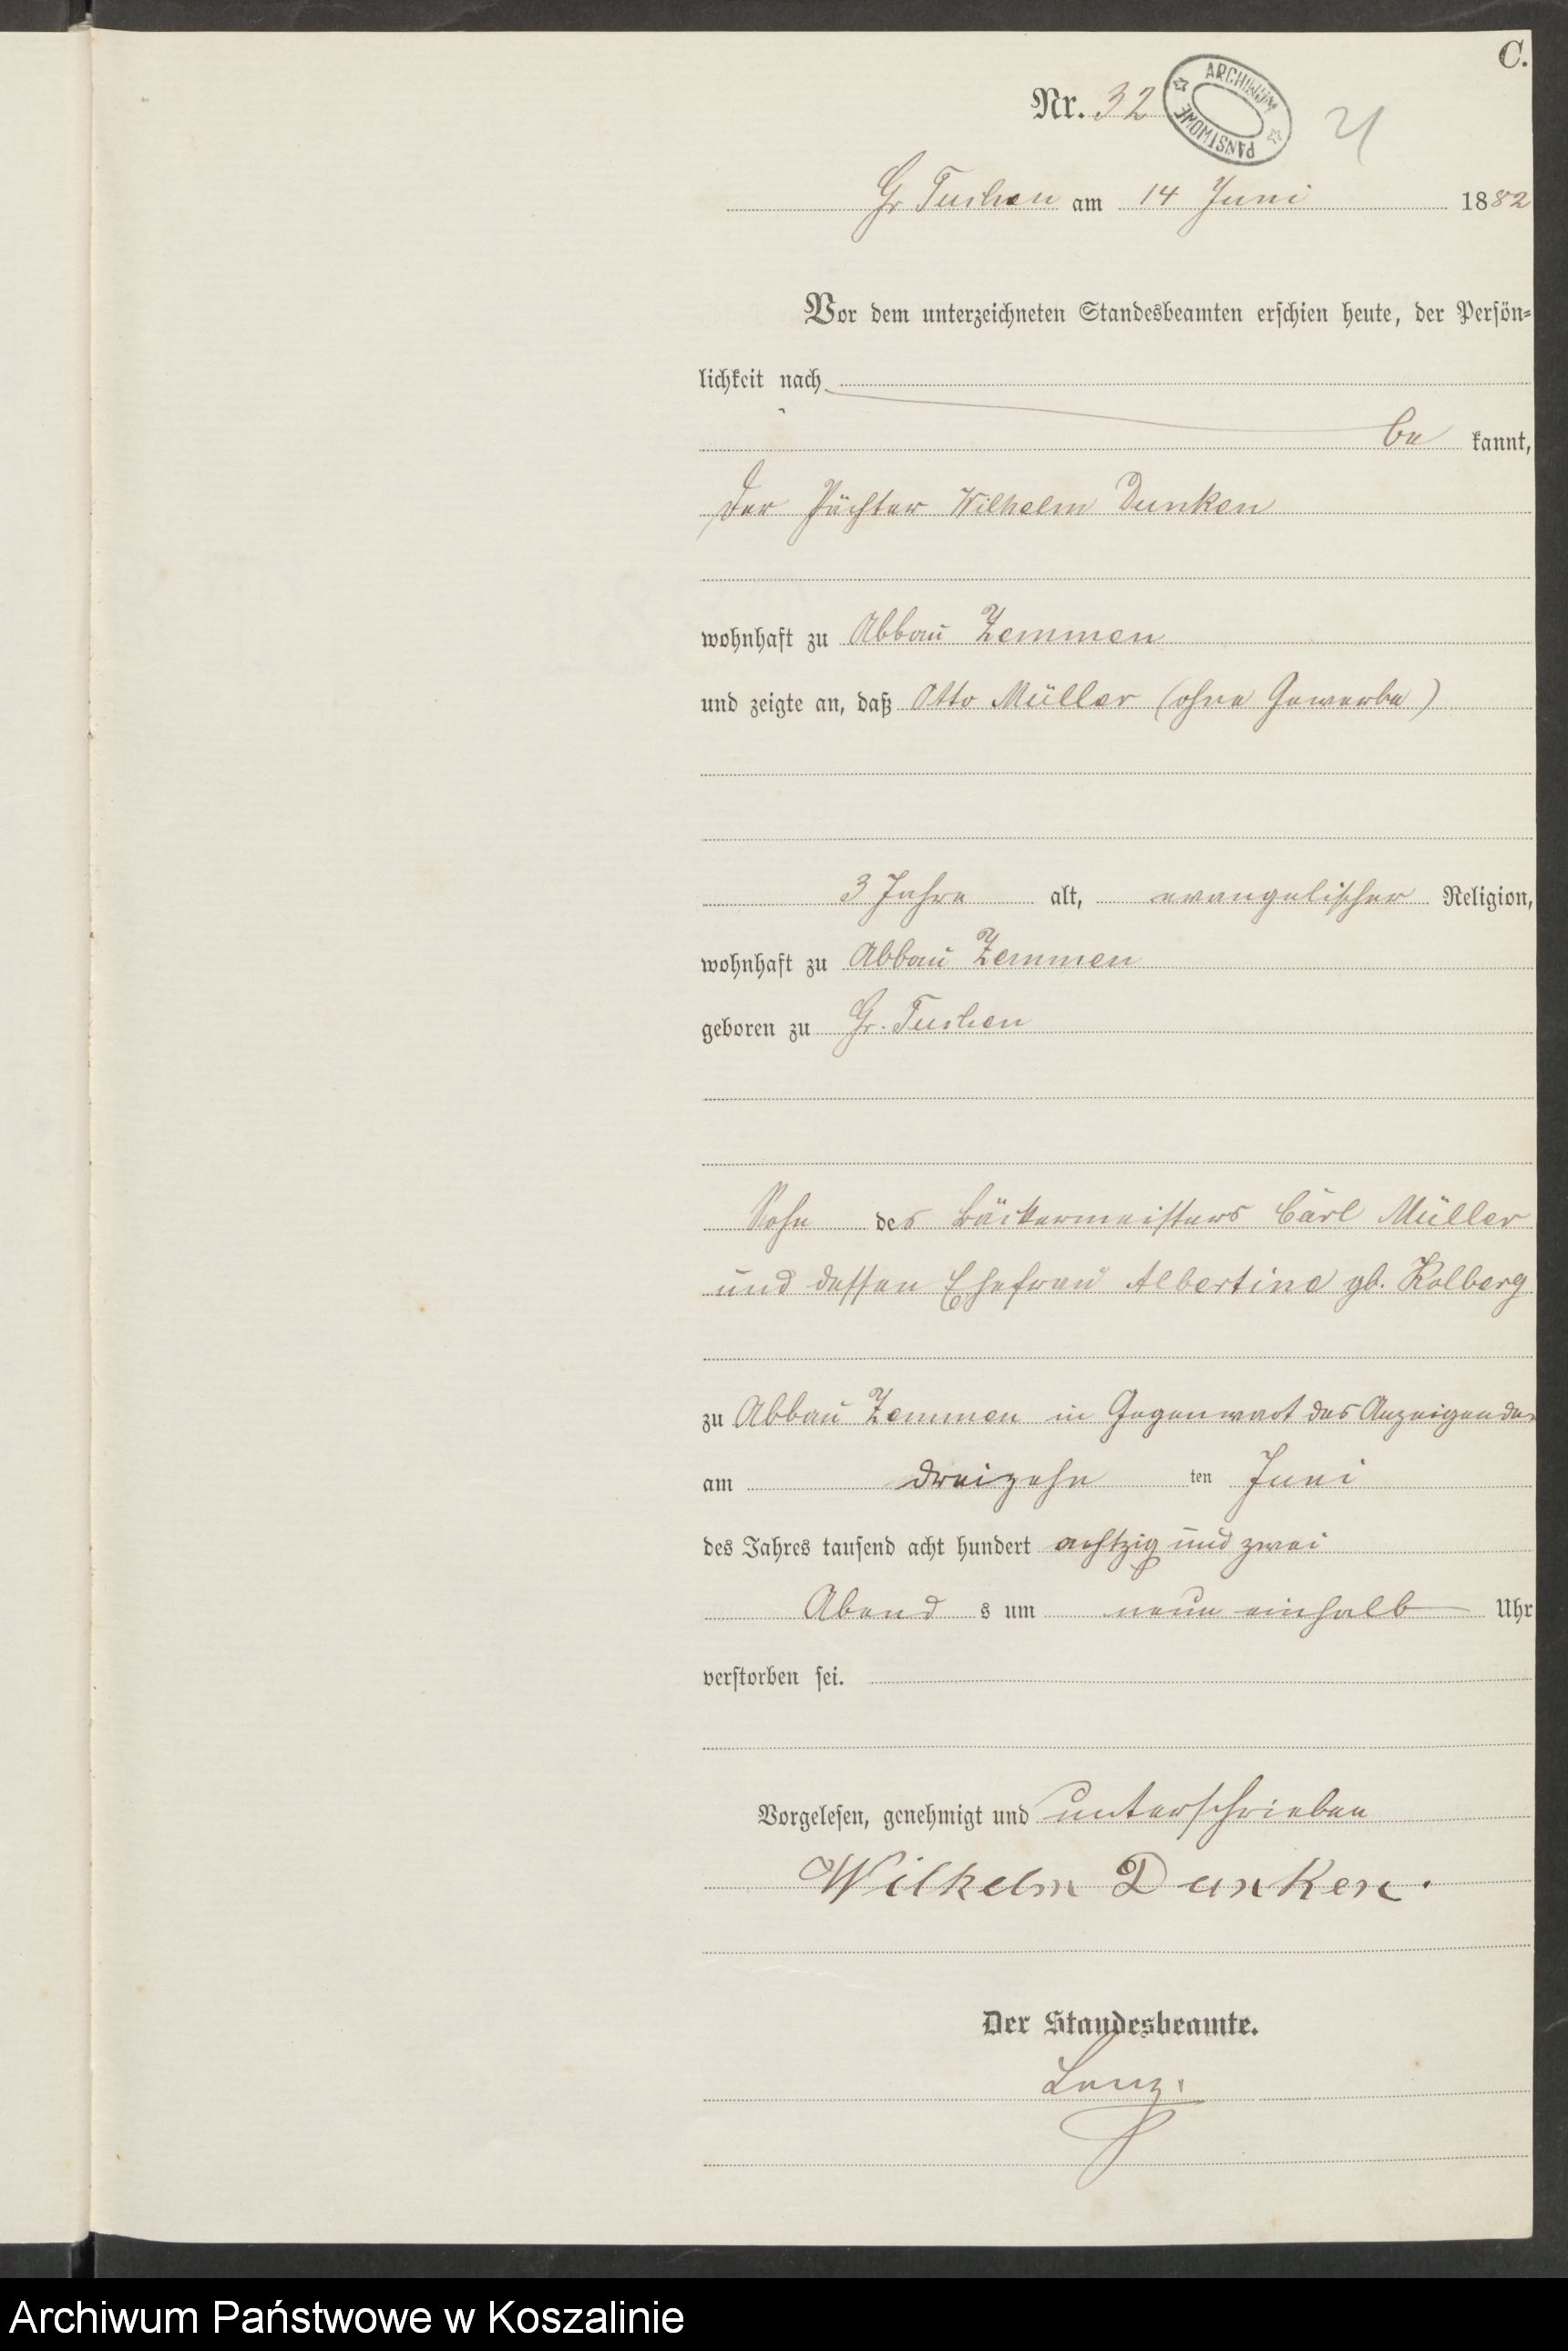 C.
Nr. 32
ARCHIWUM PAŃSTWOWE
21
Gr Tuchen am 14 Juni 1882
Vor dem unterzeichneten Standesbeamten erschien heute, der Persön-
lichkeit nach
be kannt,
der Pächter Wilhelm Dunken
wohnhaft zu Abbau Zemmen
und zeigte an, daß Otto Müller (ohne Gewerbe)
3 Jahre alt, evangelischer Religion,
wohnhaft zu Abbau Zemmen
geboren zu Gr. Tuchen
Sohn des Bäckermeisters Carl Müller
und dessen Ehefrau Albertine gb. Kolberg
zu Abbau Zemmen in Gegenwart des Anzeigenden
am dreizehn ten Juni
des Jahres tausend acht hundert achtzig und zwei
Abend s um neun einhalb Uhr
verstorben sei.
Vorgelesen, genehmigt und unterschrieben
Wilhelm Dunken.
Der Standesbeamte.
Lenz.
Archiwum Państwowe w Koszalinie